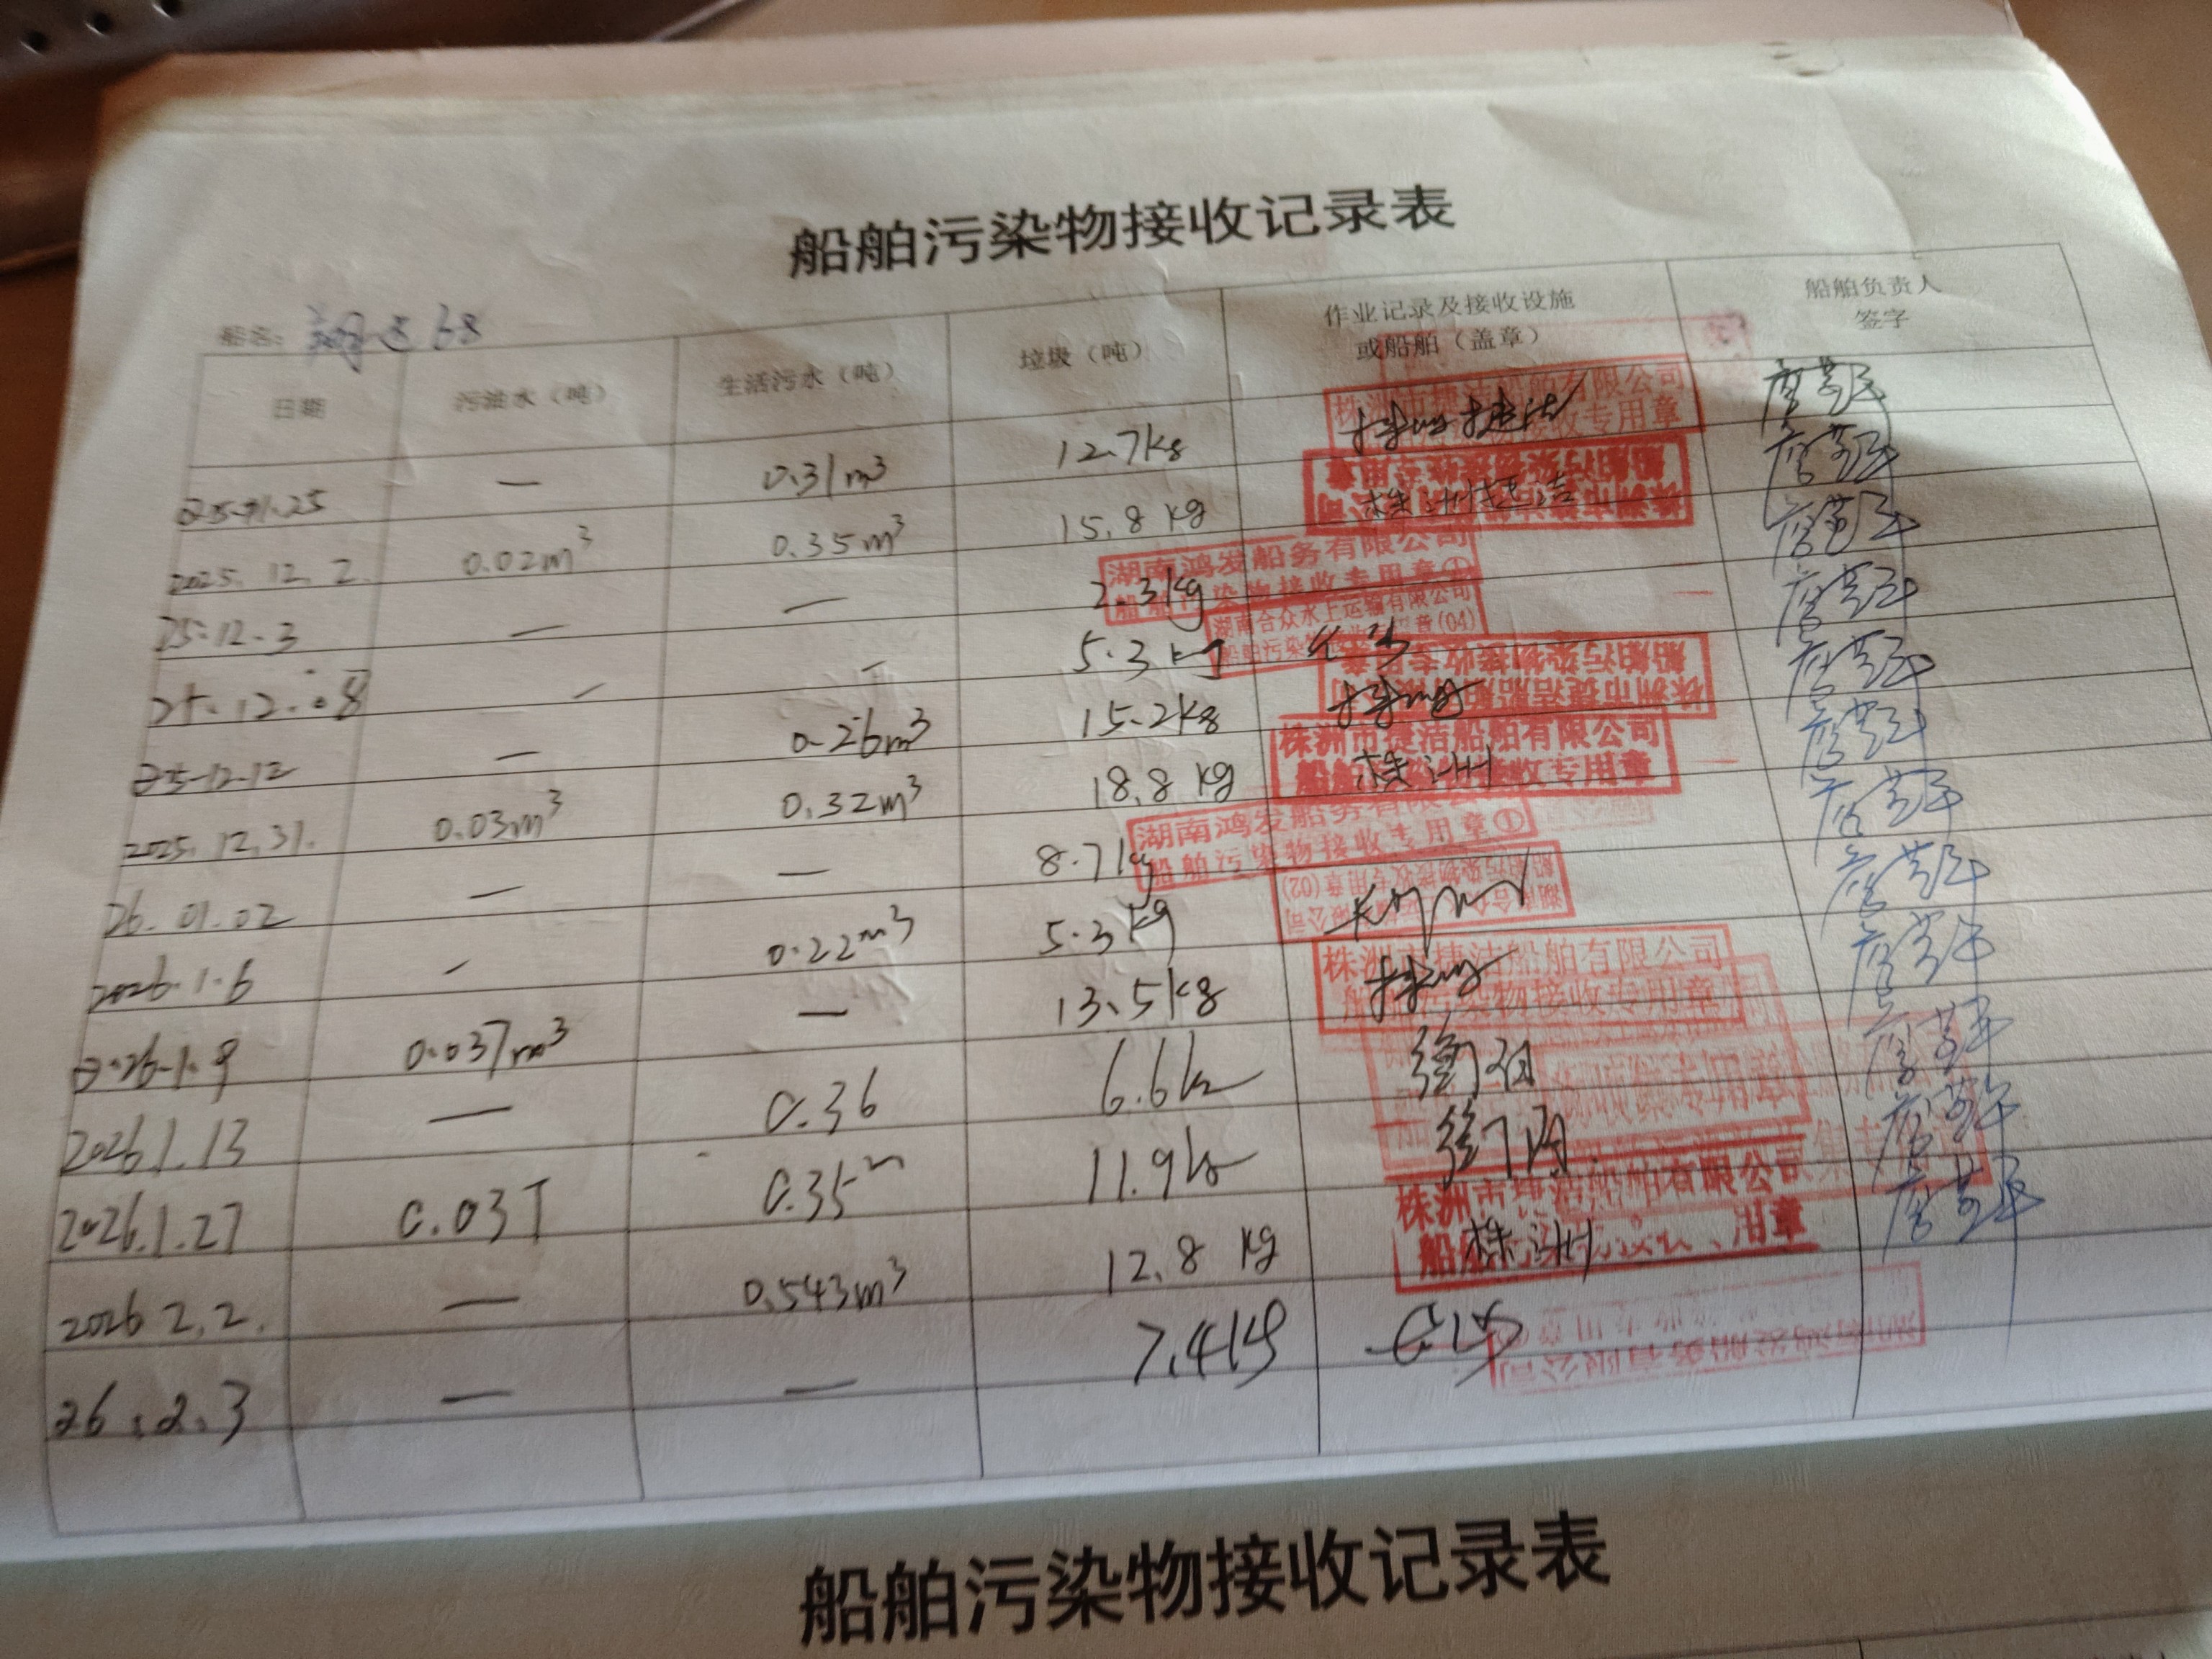 船舶污染物接收记录表
船名: 翔运68
日期 污油水（吨） 生活污水（吨） 垃圾（吨） 作业记录及接收设施或船舶（盖章） 船舶负责人签字
2025.11.25 — 0.31m³ 12.7kg 株洲捷洁 株洲市捷洁船舶有限公司 船舶污染物接收专用章
2025.12.2. 0.02m³ 0.35m³ 15.8kg 株洲捷洁 株洲市捷洁船舶有限公司 船舶污染物接收专用章
25.12.3 — — 2.3kg 湖南鸿发船务有限公司 船舶污染物接收专用章①
25.12.08 — — 5.3kg 湖南合众水上运输有限公司 船舶污染物接收专用章(04)
2025-12-12 — 0.26m³ 15.2kg 株洲 株洲市捷洁船舶有限公司 船舶污染物接收专用章
2025.12.31. 0.03m³ 0.32m³ 18.8kg 株洲 株洲市捷洁船舶有限公司 船舶污染物接收专用章
26.01.02 — — 8.7kg 湖南鸿发船务有限公司 船舶污染物接收专用章①
2026.1.6 — 0.22m³ 5.3kg 湖南合众水上运输有限公司 船舶污染物接收专用章(02)
2026.1.9 0.037m³ — 13.5kg 株洲 株洲市捷洁船舶有限公司 船舶污染物接收专用章
2026.1.13 — 0.36 6.6kg
2026.1.27 0.03T 0.35m 11.9kg
2026 2.2. — 0.543m³ 12.8kg 株洲 株洲市捷洁船舶有限公司
26.2.3 — — 7.4kg 湖南鸿发船务有限公司
船舶污染物接收记录表